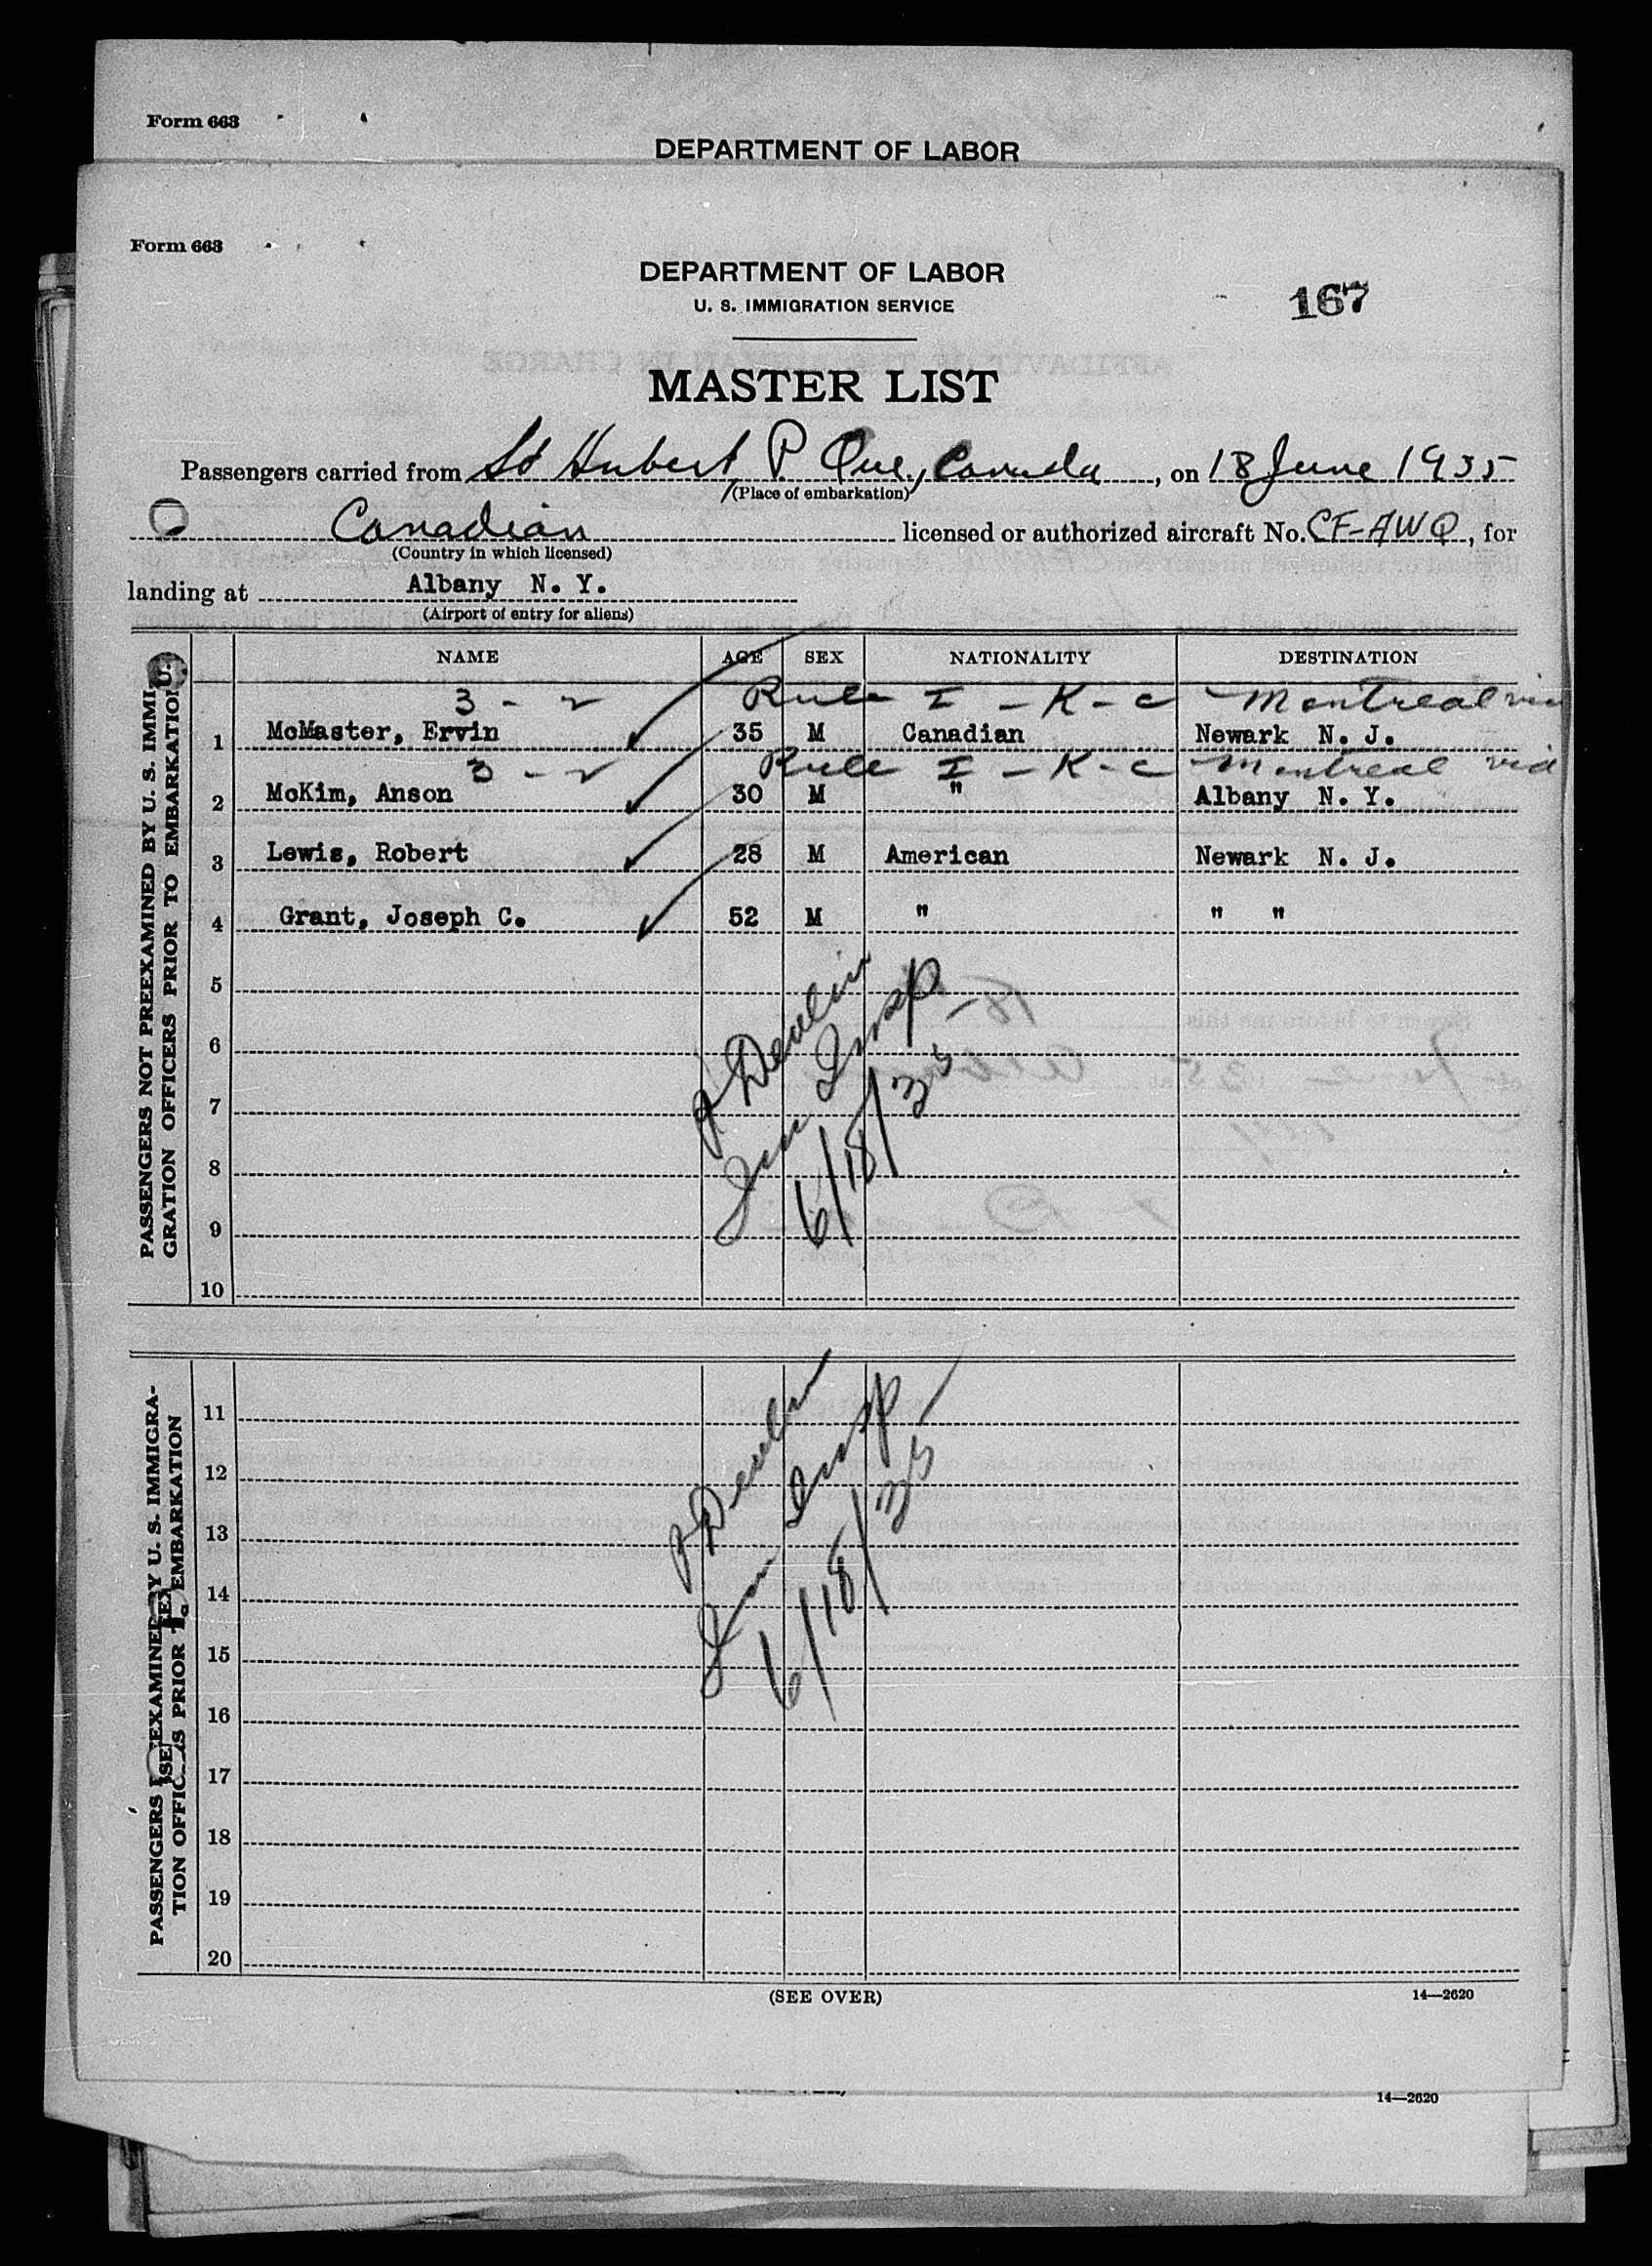 Form 663
DEPARTMENT OF LABOR
Form 663
DEPARTMENT OF LABOR
U. S. IMMIGRATION SERVICE
167
MASTER LIST
Passengers carried from St Hubert P. Que, Canada, on 18 June 1935
(Place of embarkation)
Canadian licensed or authorized aircraft No. CF-AWQ, for
(Country in which licensed)
landing at Albany N. Y.
(Airport of entry for aliens)
NAME AGE SEX NATIONALITY DESTINATION
PASSENGERS NOT PREEXAMINED BY U. S. IMMI
GRATION OFFICERS PRIOR TO EMBARKATION
3 - 2 Rule I - K - c - Montreal via
1 McMaster, Ervin 35 M Canadian Newark N. J.
3 - 2 Rule I - K - c - Montreal via
2 McKim, Anson 30 M " Albany N. Y.
3 Lewis, Robert 28 M American Newark N. J.
4 Grant, Joseph C. 52 M " " "
5
6
7
8
9
10
Devlin
Imm Insp
6/18/35
PASSENGERS EXAMINED BY U. S. IMMIGRA-
TION OFFIC S PRIOR EMBARKATION
11
12
13
14
15
16
17
18
19
20
Devlin
Imm Insp
6/18/35
(SEE OVER)
14—2620
14—2620